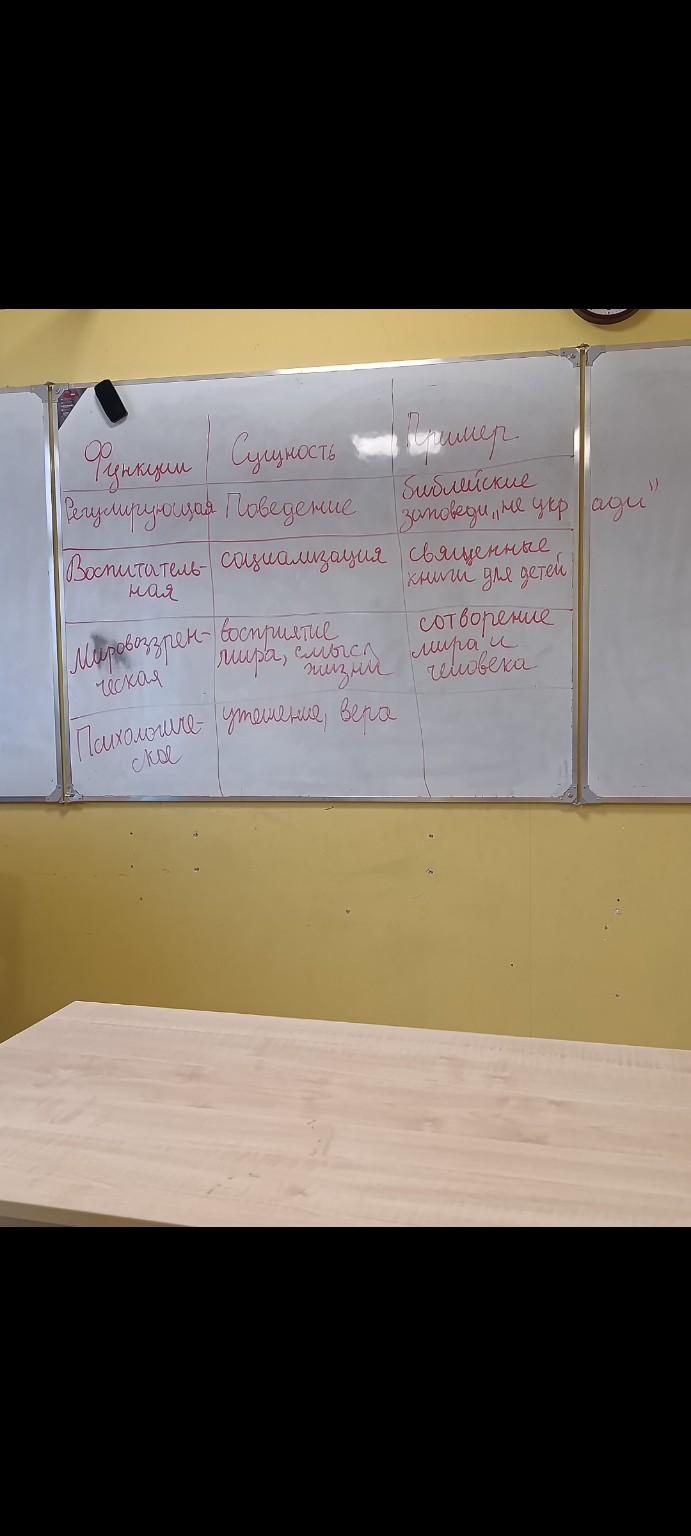 Функции Сущность Пример
Регулирующая Поведение библейские
заповеди „не укради"
Воспитатель-
ная
социализация
священные
книги для детей
Мировоззрен-
ческая
восприятие
мира, смысл
жизни
сотворение
мира и
человека
Психологиче-
ское
утешение, вера